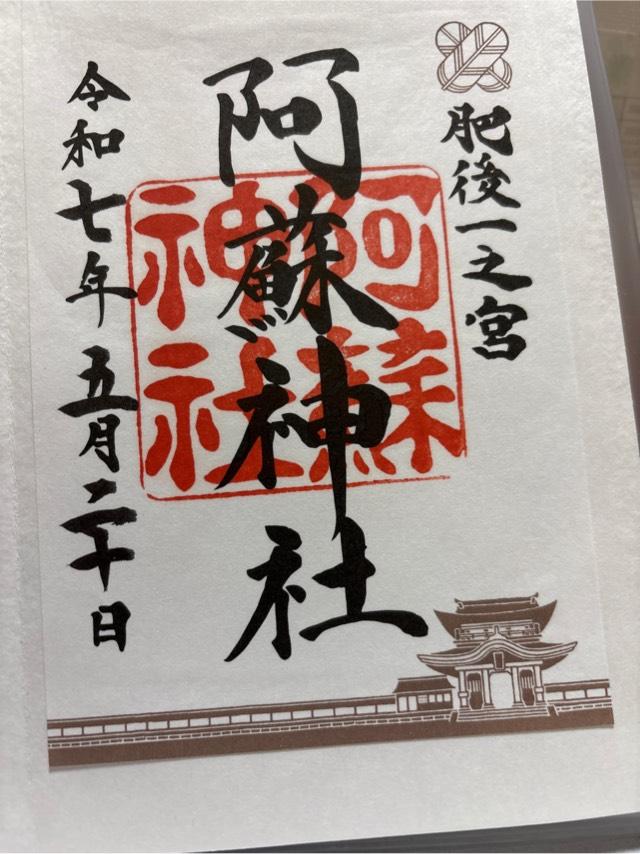 肥後一之宮
阿蘇神社
阿蘇神社
令和七年五月二十日